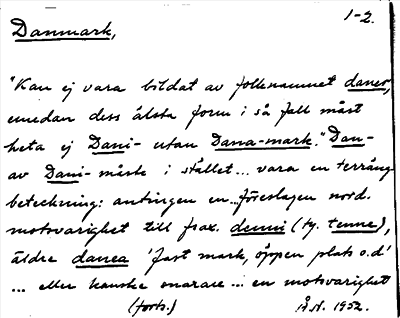 1-2.
Danmark,
"Kan ej vara bildat av folknamnet daner,
emedan dess älsta form i så fall måst
heta ej Dani- utan Dana-mark." Dan-
av Dani- måste i stället... vara en terräng
beteckning: antingen en.. föreslagen nord.
motsvarighet till fsax. denni (ty. tenne),
äldre danea 'fast mark, öppen plats o.d'
... eller kanske snarare ... en motsvarighet
(forts.) ÅSt. 1952.